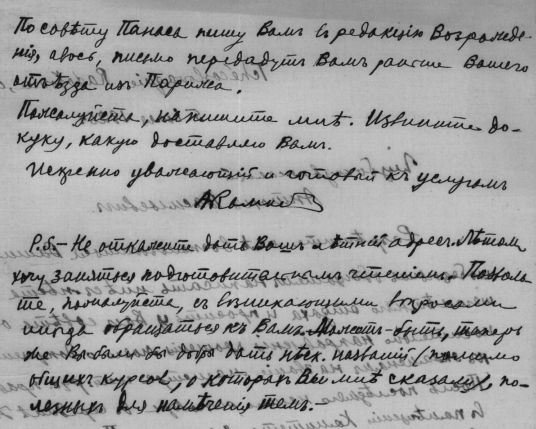 По совѣту Панаса пишу Вамъ въ редакцію Возрожде-
нія, авось, письмо передадутъ Вамъ раньше Вашего
отъѣзда изъ Парижа.
Пожалуйста, напишите мнѣ. Извините до-
куку, какую доставляю Вамъ.
Искренно уважающій и готовый къ услугамъ
P.S. – Не откажите дать Вашъ лѣтній адресъ. Лѣтомъ
хочу заняться подготовительнымъ чтеніемъ. Позволь-
те, пожалуйста, съ возникающими вопросами
иногда обращаться къ Вамъ. Можетъ-быть, теперь
же Вы были бы добры дать нѣск. названій (помимо
общихъ курсовъ, о которыхъ Вы мнѣ сказали), по-
лезныхъ для намѣченія темъ. –